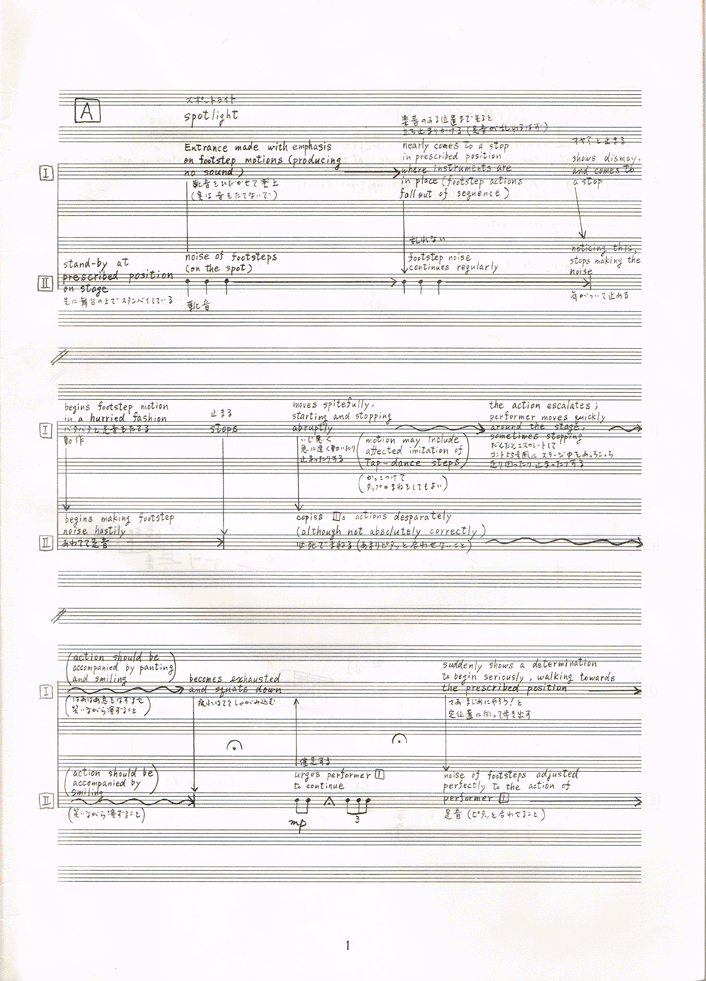 A
スポットライト
spotlight
Entrance made with emphasis
on footstep motions (producing
no sound)
靴音をひびかせて登上
(実は音をたてないで)
楽器のある位置まで来ると
立ち止まりかける(足音が乱れるはず)
nearly comes to a stop
in prescribed position
where instruments are
in place (footstep actions
fall out of sequence)
と止まる
shows dismay,
and comes to
a stop
I
stand-by at
prescribed position
on stage
先に舞台の上でスタンバイしている
noise of footsteps
(on the spot)
靴音
乱れない
footstep noise
continues regularly
noticing this,
stops making the
noise
気がついて止める
II
begins footstep motion
in a hurried fashion
バタバタと足音をたてる
動作
止まる
stops
moves spitefully,
starting and stopping
abruptly
いじ悪く
急に速く動いたり
止まったりする
(motion may include
affected imitation of
tap-dance steps)
(かっこつけて
タップのまねをしてもよい)
the action escalates;
performer moves quickly
around the stage,
sometimes stopping
だんだんエスカレートして
走り回ったり止まったりする
I
begins making footstep
noise hastily
あわてて足音
copies II's actions desparately
(although not absolutely correctly)
必死でまねる(あまりピタッと合わせないこと)
II
(action should be
accompanied by panting
and smiling)
(はあはあ息をはずませ
笑いながら演ずること)
becomes exhausted
and squats down
疲れはててしゃがみ込む
suddenly shows a determination
to begin seriously, walking towards
the prescribed position
さあまじめにやろう!と
定位置に向って歩き出す
I
(action should be
accompanied by
smiling)
(笑いながら演ずること)
催促する
urges performer I
to continue
mp
3
noise of footsteps adjusted
perfectly to the action of
performer I
足音(ピタッと合わせること)
II
1